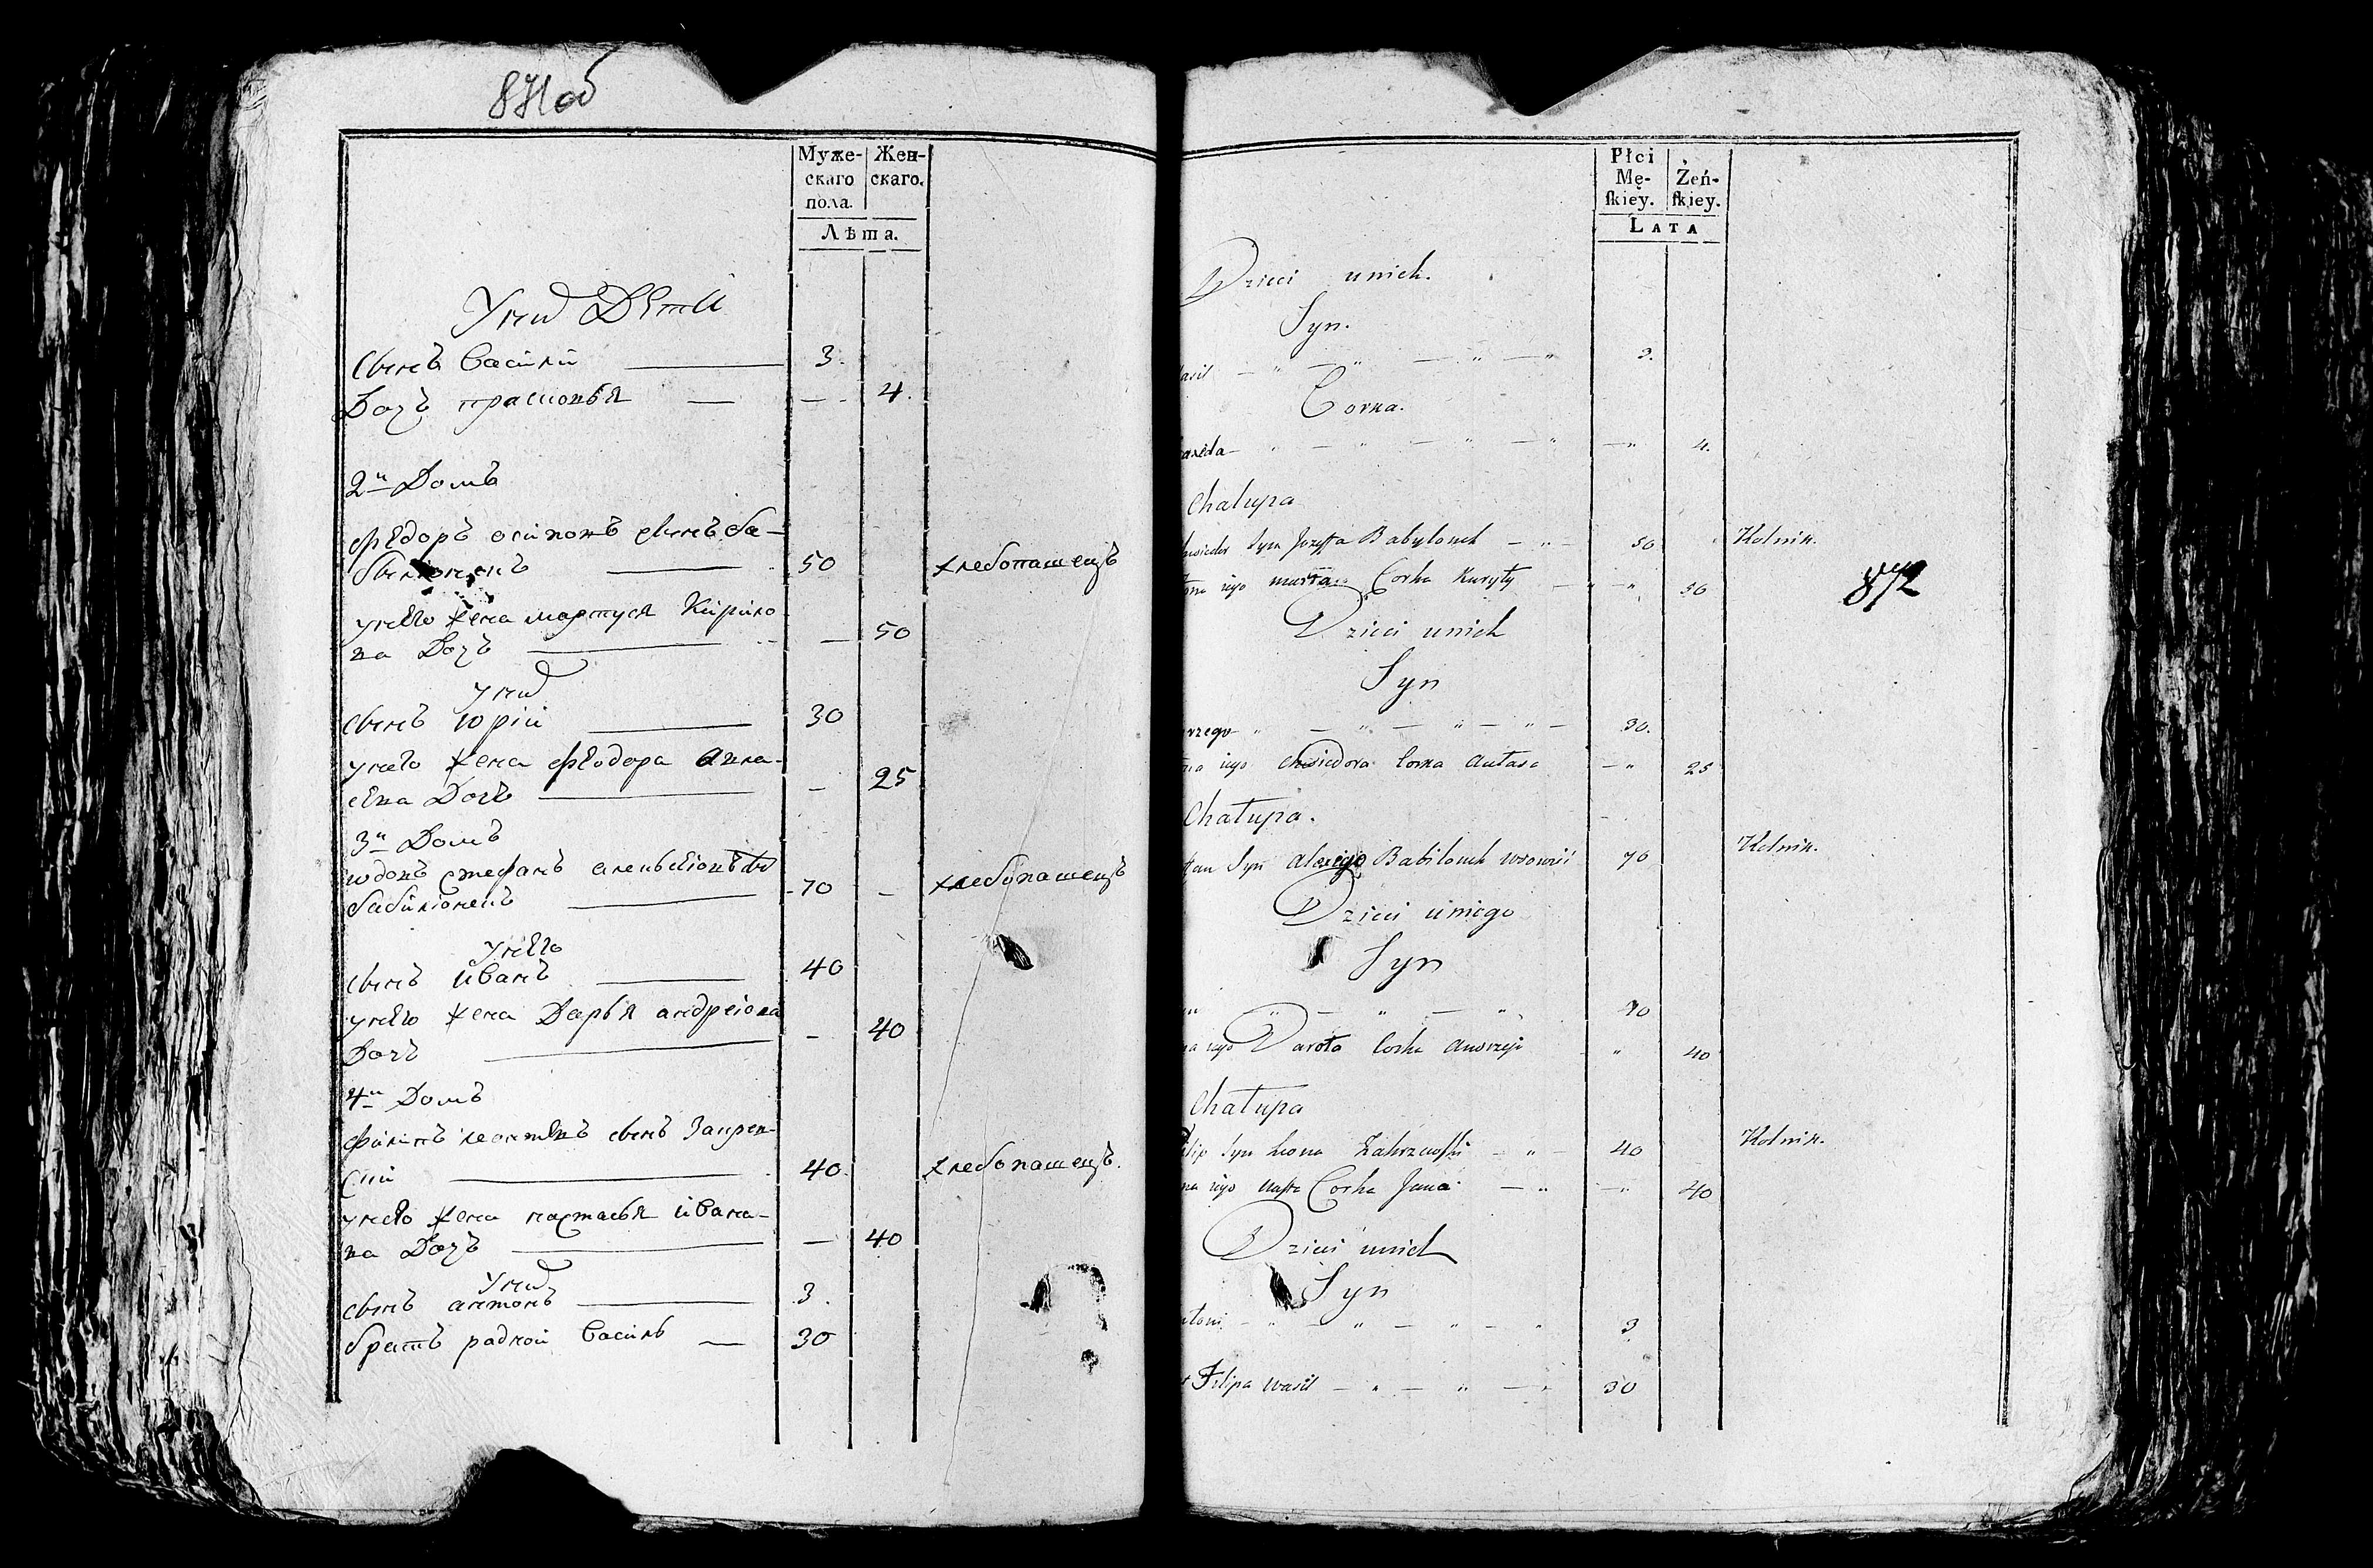 871 об
Муже-
скаго
пола.
Жен-
скаго.
Лѣта.
У нихъ Дѣти
сынъ Василій 3.
Доч прасковья — 4.
2й Домъ
Федоръ осиповъ сынъ ба-
50 хлебопашецъ
у нево жена мартуся Кирило
на Доч — 50
у нихъ
сынъ юрій 30
у нево жена Феодора
Доч — 25
3й Домъ
вдовъ стефанъ
70 — хлебопашецъ
у нево
сынъ иванъ 40
у нево жена Дарья андреіова
Доч — 40
4й Домъ
Филипъ сынъ Закрев-
скій 40. хлебопашецъ.
у нево жена настасья ивано-
на Доч — 40
у нихъ
сынъ антонъ 3.
братъ радной Василь 30
Płci
Mę-
ſkiey.
Żeń-
ſkiey.
LATA
Dzieci u nich.
Syn.
asil 3.
Corka.
4.
Chałupa
Syn Jozeffa Babylonek 50 Rolnik.
iego Marta Corka Kuryły 50
872
Dzieci u nich
Syn
rzego 30.
iego Chwiedora Corka 25
Chałupa.
ffan Syn Alexego Babilonek wdowiec 70 Rolnik.
Dzieci u niego
Syn
40
na iego Darota Corka Andrzeja 40
Chałupa
ilip Syn Leona Zakrzewſki 40 Rolnik.
na iego Naſta Corka Jana 40
Dzieci u nich
Syn
ntoni 3
t Filipa Wasil 30